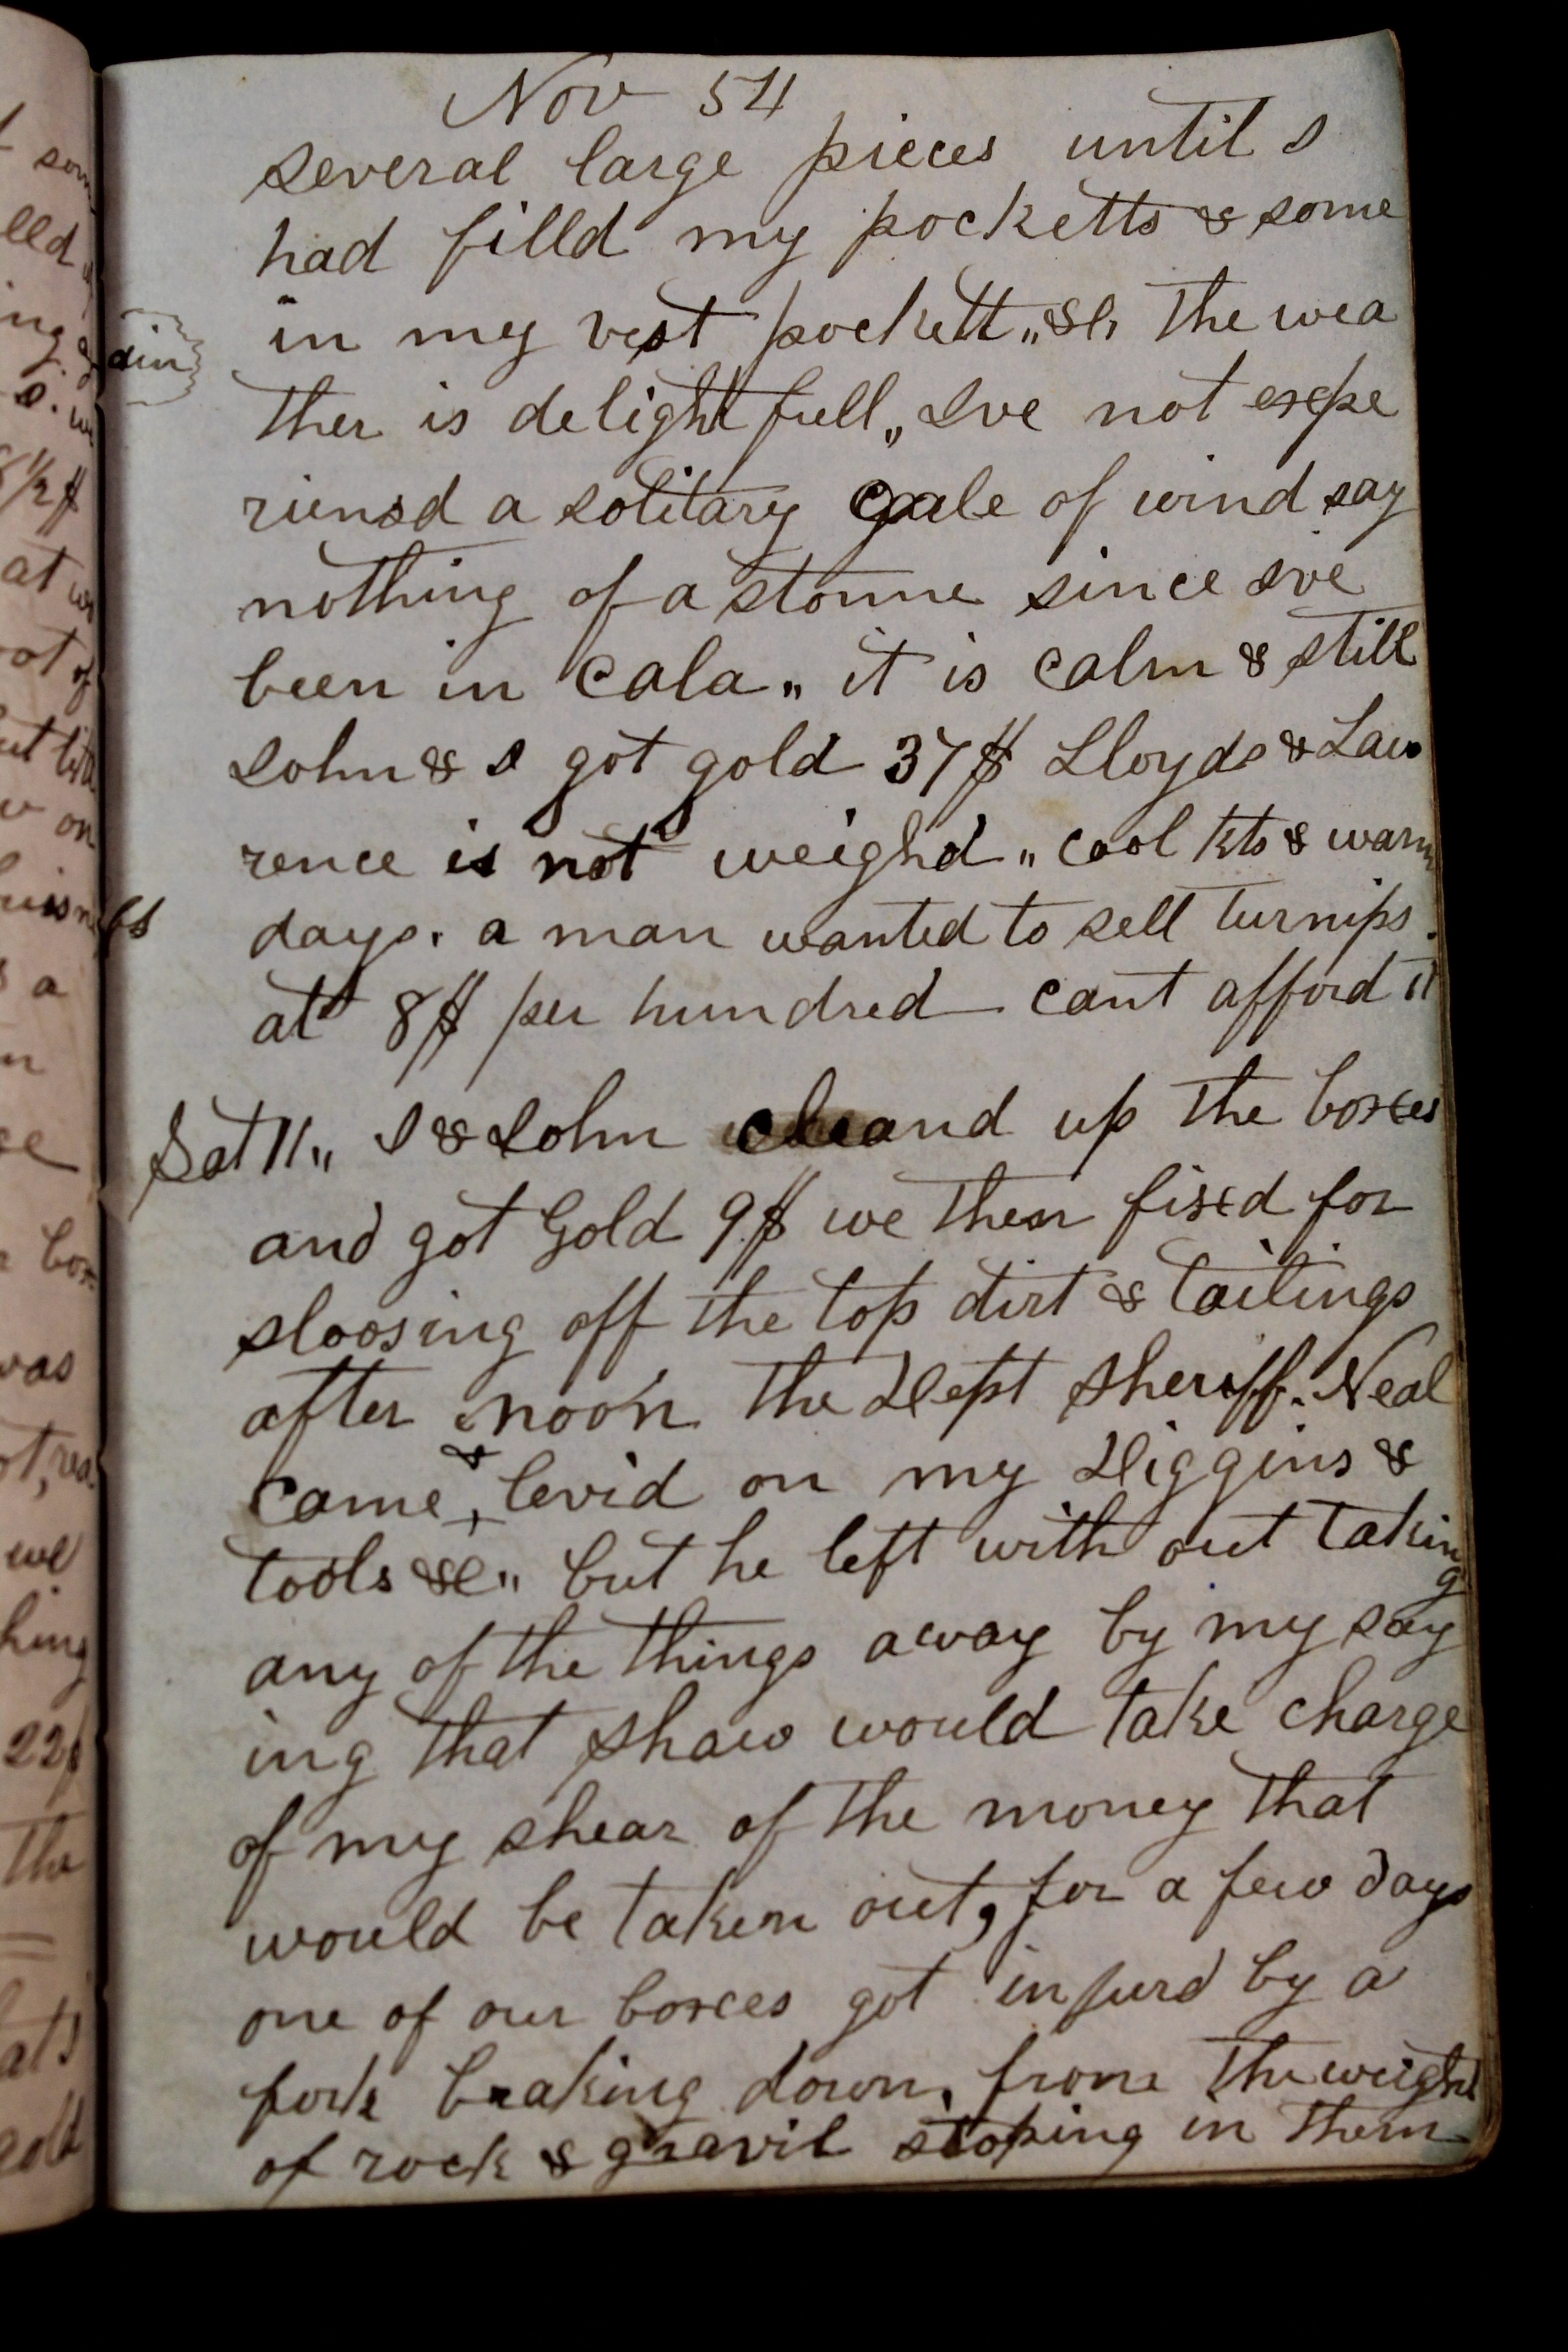 Nov 54
several large pieces until I
had filld my pocketts & some
in my vest pockett „ &c, the wea
ther is delightfull „ Ive not expe
riensd a solitary gale of wind say
nothing of a storme since Ive
been in Cala „ it is calm & still
John & I got gold 37$ Lloyds & Law
rence is not weighd „ cool nts & warm
days. a man wanted to sell turnips.
at 8$ per hundred — cant afford it
Sat 11 „ I & John cleand up the boxes
and got Gold 9$ we then fixd for
sloosing off the top dirt & tailings
after noon the Dept Sheriff. Neal
came & levid on my Diggins &
tools &c „ but he left with out taking
any of the things away by my say
ing that Shaw would take charge
of my shear of the money that
would be taken out, for a few days
one of our boxces got injurd by a
fork braking down, from the weight
of rock & gravil stoping in them